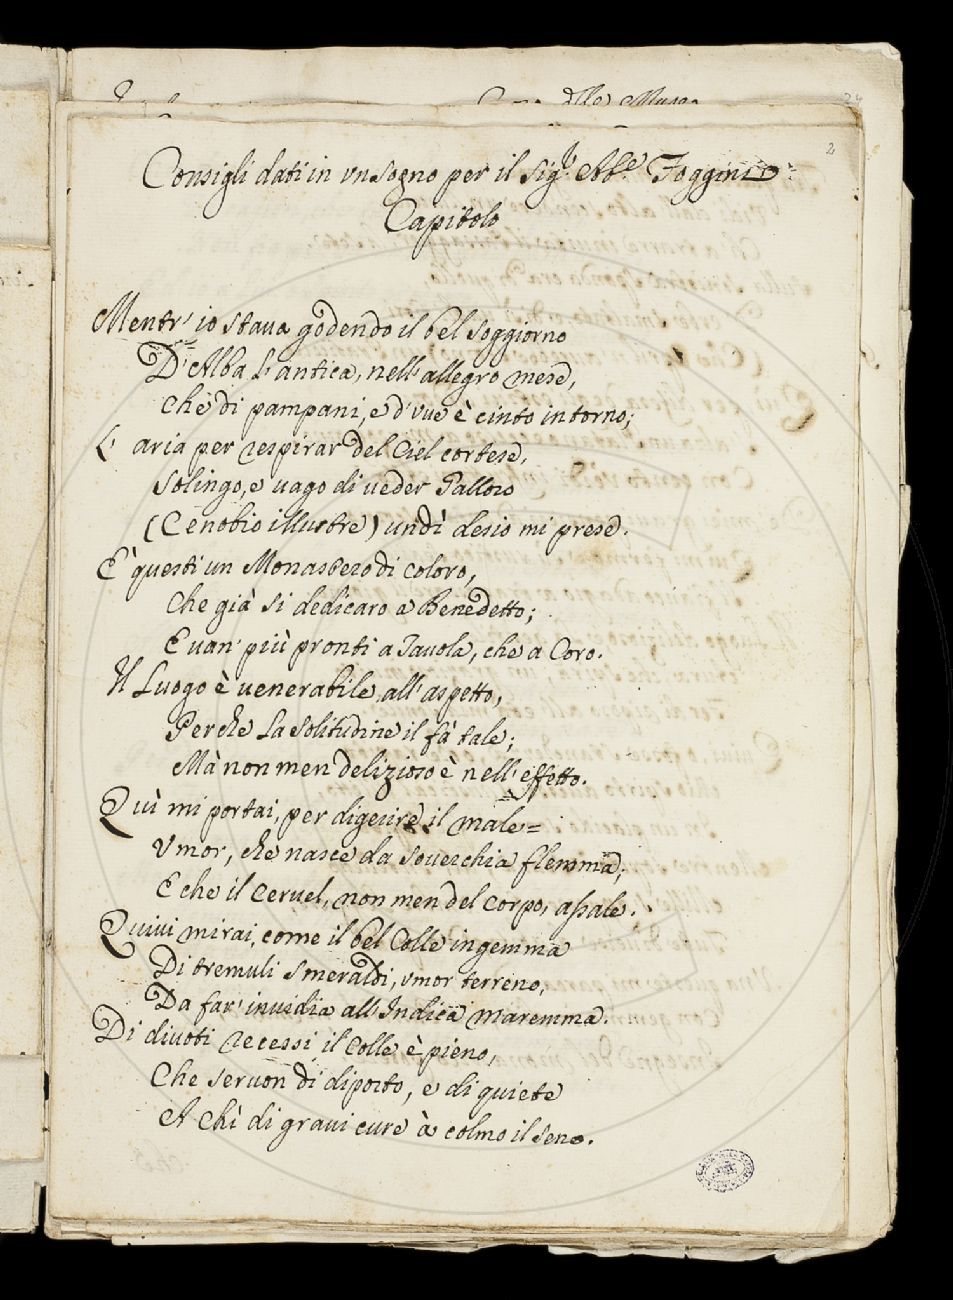 24
2
Consigli dati in vn sogno per il Sig.r Ab.e Foggini
Capitolo
Mentr' io staua godendo il bel soggiorno
D'Alba l'antica, nell'allegro mese,
Che di pampani, e d'vue è cinto intorno;
L' aria per respirar del Ciel cortese,
Solingo, e uago di ueder Palloro
(Cenobio illustre) un dì desio mi prese.
È questi un Monastero di coloro,
Che già si dedicaro a Benedetto;
E uan' più pronti a Tauola, che a Coro.
Il Luogo è uenerabile all'aspetto,
Perche la solitudine il fà tale;
Mà non men delizioso è nell'effetto.
Quì mi portai, per digerire il male=
Vmor, che nasce da souerchia flemma;
E che il Ceruel, non men del corpo, assale.
Quiui mirai, come il bel Colle ingemma
Di tremuli smeraldi, vmor terreno,
Da far' inuidia all'Indica maremma.
Di diuoti recessi il Colle è pieno,
Che seruon di diporto, e di quiete
A Chì di graui cure à colmo il seno.